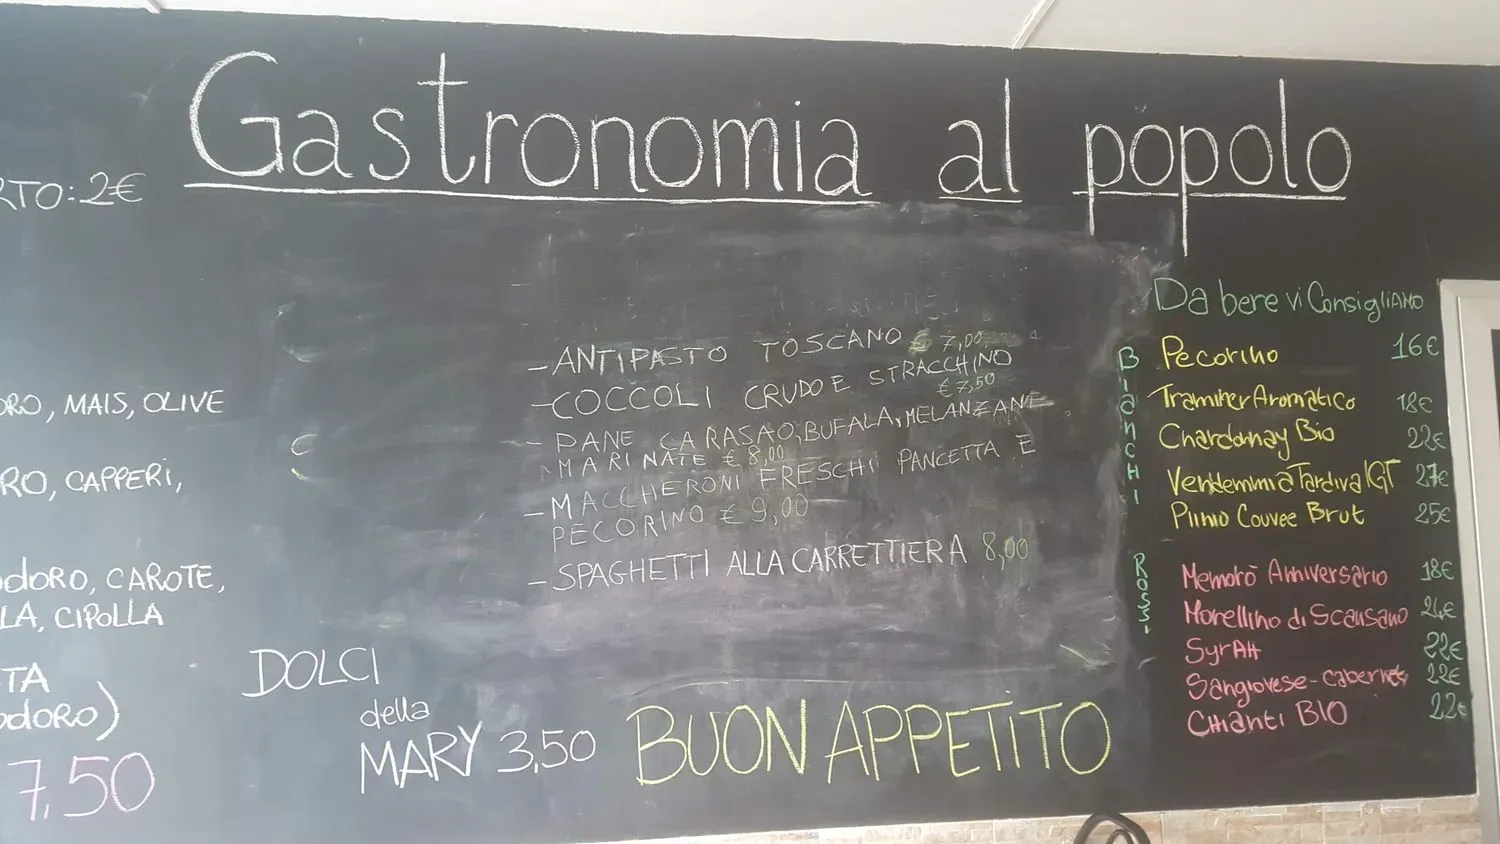 Gastronomia al popolo
RTO: 2€
ORO, MAIS, OLIVE
RO, CAPPERI,
ODORO, CAROTE,
LLA, CIPOLLA
TA
ODORO)
7,50
- ANTIPASTO TOSCANO € 7,00
- COCCOLI CRUDO E STRACCHINO
€ 7,50
- PANE CARASAO, BUFALA, MELANZANE
MARINATE € 8,00
- MACCHERONI FRESCHI PANCETTA E
PECORINO € 9,00
- SPAGHETTI ALLA CARRETTIERA 8,00
DOLCI
della
MARY 3,50
BUON APPETITO
Da bere vi Consigliamo
Bianchi
Pecorino 16€
Traminer Aromatico 18€
Chardonnay Bio 22€
Vendemmia Tardiva IGT 27€
Plinio Couvee Brut 25€
Rossi
Memorò Anniversario 18€
Morellino di Scansano 24€
Syrah 22€
Sangiovese-cabernet 22€
Chianti BIO 22€